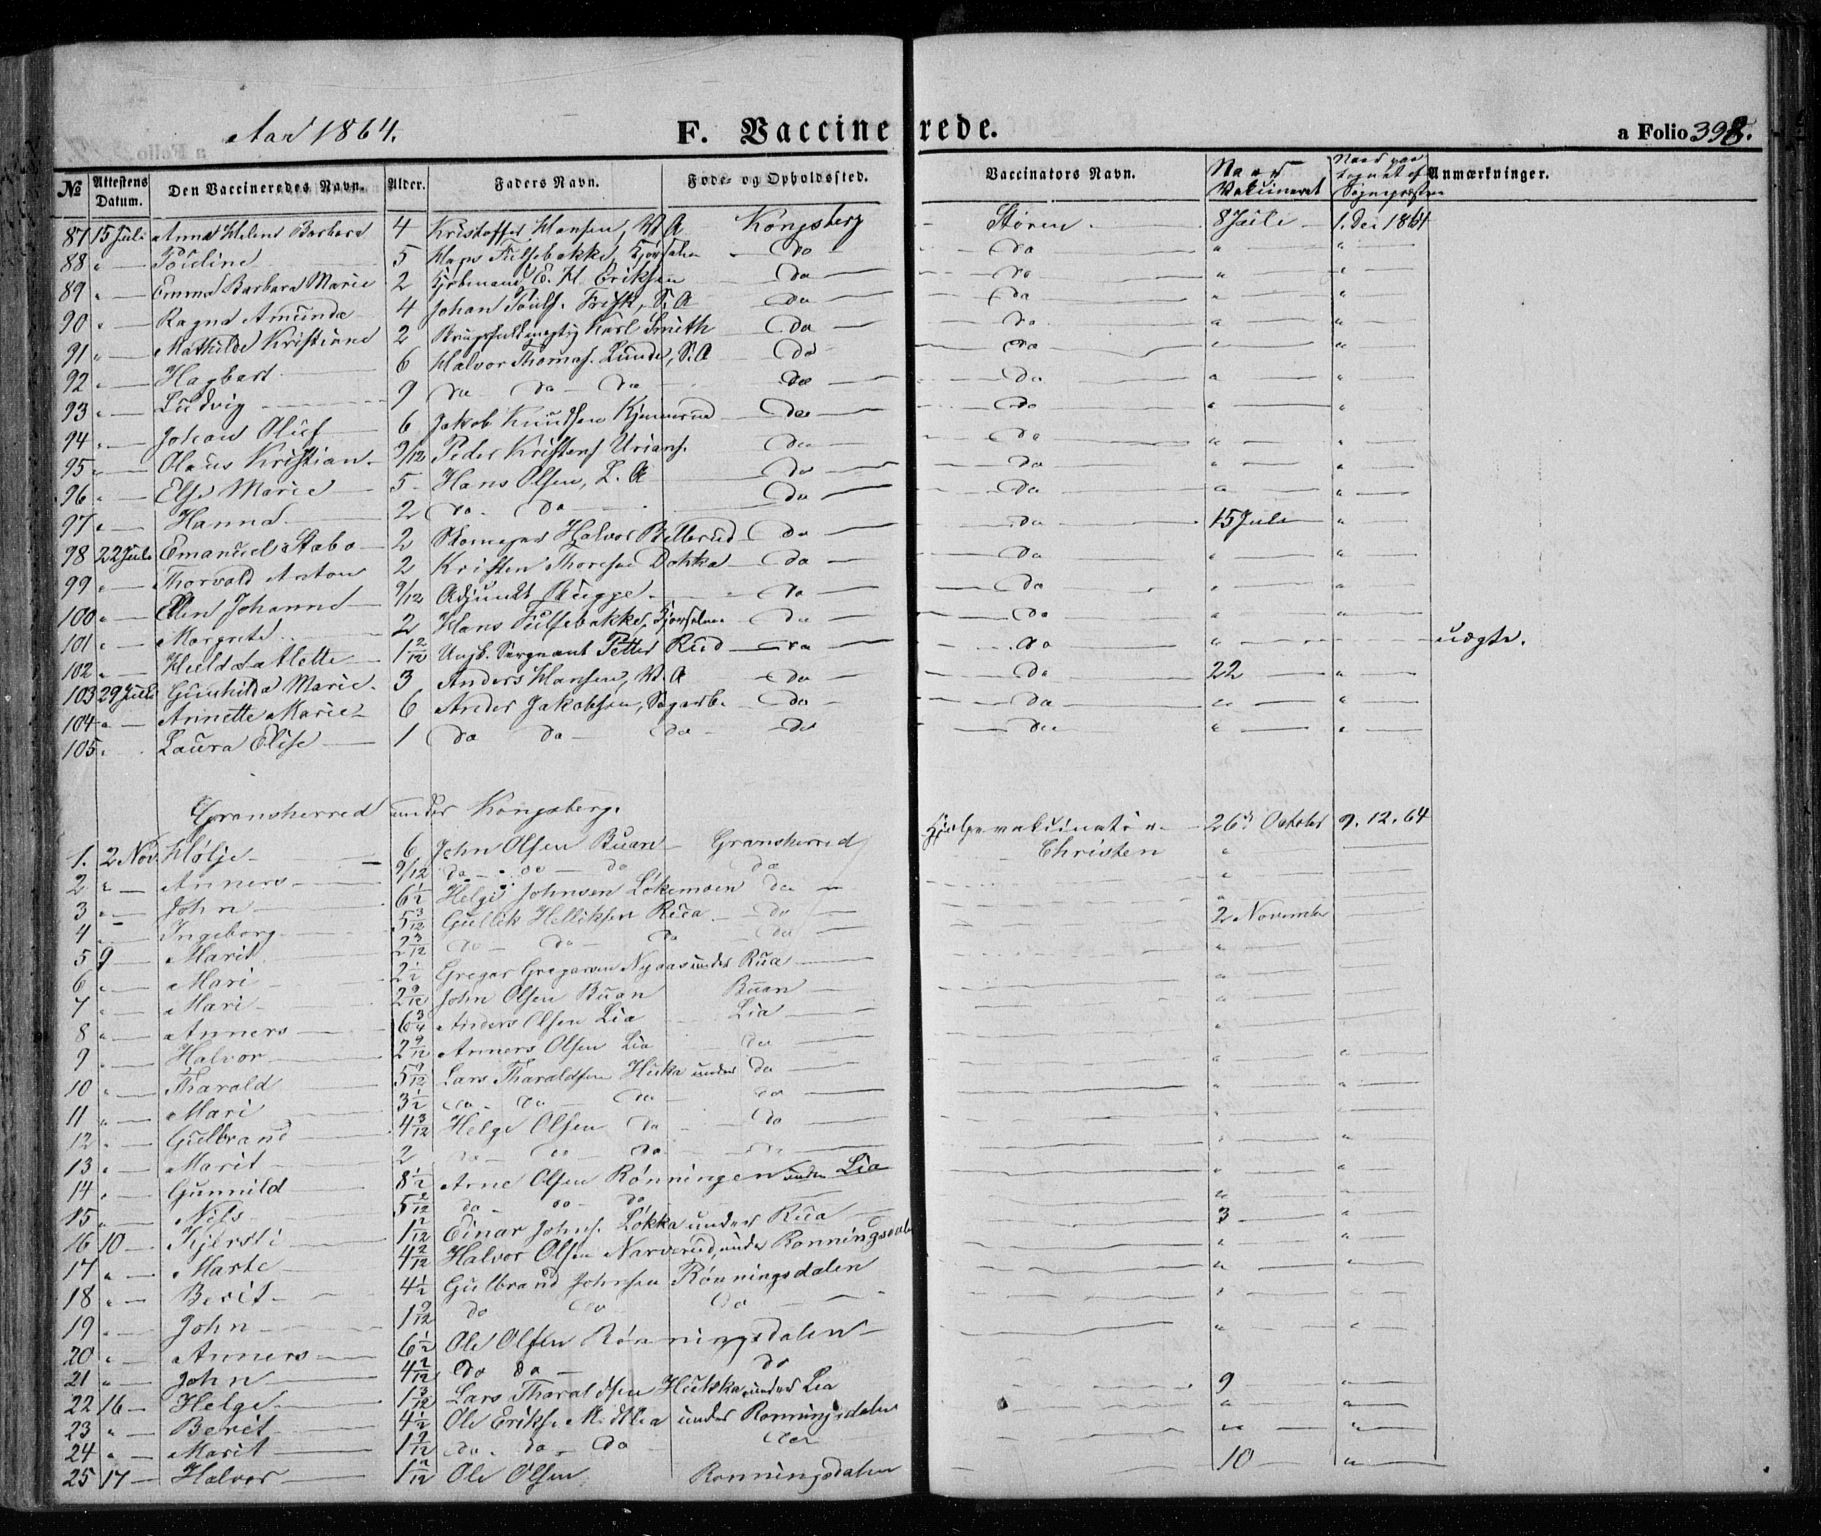 Aar 1864. F. Vaccinerede. a Folio 398.
№ Attestens Datum. Den Vaccineredes Navn. Alder. Faders Navn. Føde- og Opholdssted. Vaccinators Navn. Naar Vakcineret Anmærkninger.
87 15 Juli Anna Helene Barbara 4 Kristoffer Hansen, Kongsberg Støren 8 Juli 1. Dec 1864
88 " Pouline 5 Hans Fulsebakke, do do " "
89 " Emma Barbara Marie 2 E. H. Eriksen do do " "
90 " Ragna Amunda 4 Johan Frisk, S. A do do " "
91 " Mathilde Kristiane 2 Karl Smith do do " "
92 " Hagbart 6 Halvor Thomas. Lunde, S. A do do " "
93 " Ludvig 9 do do do do do " "
94 " Johan Oluf 6 Jakob Knudsen Kjennerud do do " "
95 " Olaus Kristian 9/12 Peder Kristens Urians. do do " "
96 " Else Marie 5 Hans Olsen, L. A do do " "
97 " Hanna 2 do do do do " "
98 22 Juli Emanuel Stabo 2 Skomager Halvor Billerud do do 15 Juli "
99 " Thorvald Anton 2 Kristen Thoresen Dokka do do " "
100 " Ellen Johanne 9/12 Adjunkt Bugge do do " "
101 " Margrete 2 Hans Fulsebakke, do do " "
102 " Hulda Mette 1 2/12 Ungk. Sergeant Petter Rud do do " " uægte.
103 29 Juli Gunhilda Marie 3 Anders Hansen, do do 22 "
104 " Annette Marie 6 Anders Jakobsen, Sagarb. do do " "
105 " Laura Elise 1 do do do do do " "
Gransherred under Kongsberg.
1. 2 Nov Hølje 6 John Olsen Buan Gransherred Hjelpevakcinatør Christen 26de October 9. 12. 64
2 " Anners 9/12 do do do do "
3 " John 6 1/2 Helge Johnsen Løkemoen do "
4 " Ingeborg 5 3/12 Gullik Helliksen Rua do 2 November
5 9 Marit 2 3/12 do do do do "
6 " Mari 2 1/2 Gregar Gregarsen Nyaas under Rua "
7 " Mari 2 9/12 John Olsen Buan Buan "
8 " Anners 6 3/4 Anders Olsen Lia Lia "
9 " Halvor 2 9/12 Anners Olsen Lia do " "
10 " Tharald 5 9/12 Lars Tharaldsen under do " "
11 " Mari 3 1/2 do do do do " "
12 " Gulbrand 4 3/12 Helge Olsen do do " "
13 " Marit 2 do do do do " "
14 " Gunnild 8 1/2 Arne Olsen Rønningen under Lia " "
15 " Nils 5 2/12 do do do " "
16 10 Kjersti 1 2/12 Einar Johns. Løkka under Rua 3 "
17 " Marte 4 2/12 Halvor Olsen Narverud, under Rønningsdalen " "
18 " Berit 4 1/2 Gulbrand Johnsen Rønningsdalen " "
19 " John 1 9/12 do do do " "
20 " Anners 6 1/2 Ole Olsen Rønningsdalen " "
21 " John 4 2/12 do do do " "
22 16 Helge 1 3/12 Lars Tharaldsen under Lia 9 "
23 " Berit 4 1/2 Ole Eriks. Midtlia under Rønningsdalen " "
24 " Marit 1 9/12 do do do do " "
25 17 Halvor 1 2/12 Ole Olsen Rønningsdalen 10 "